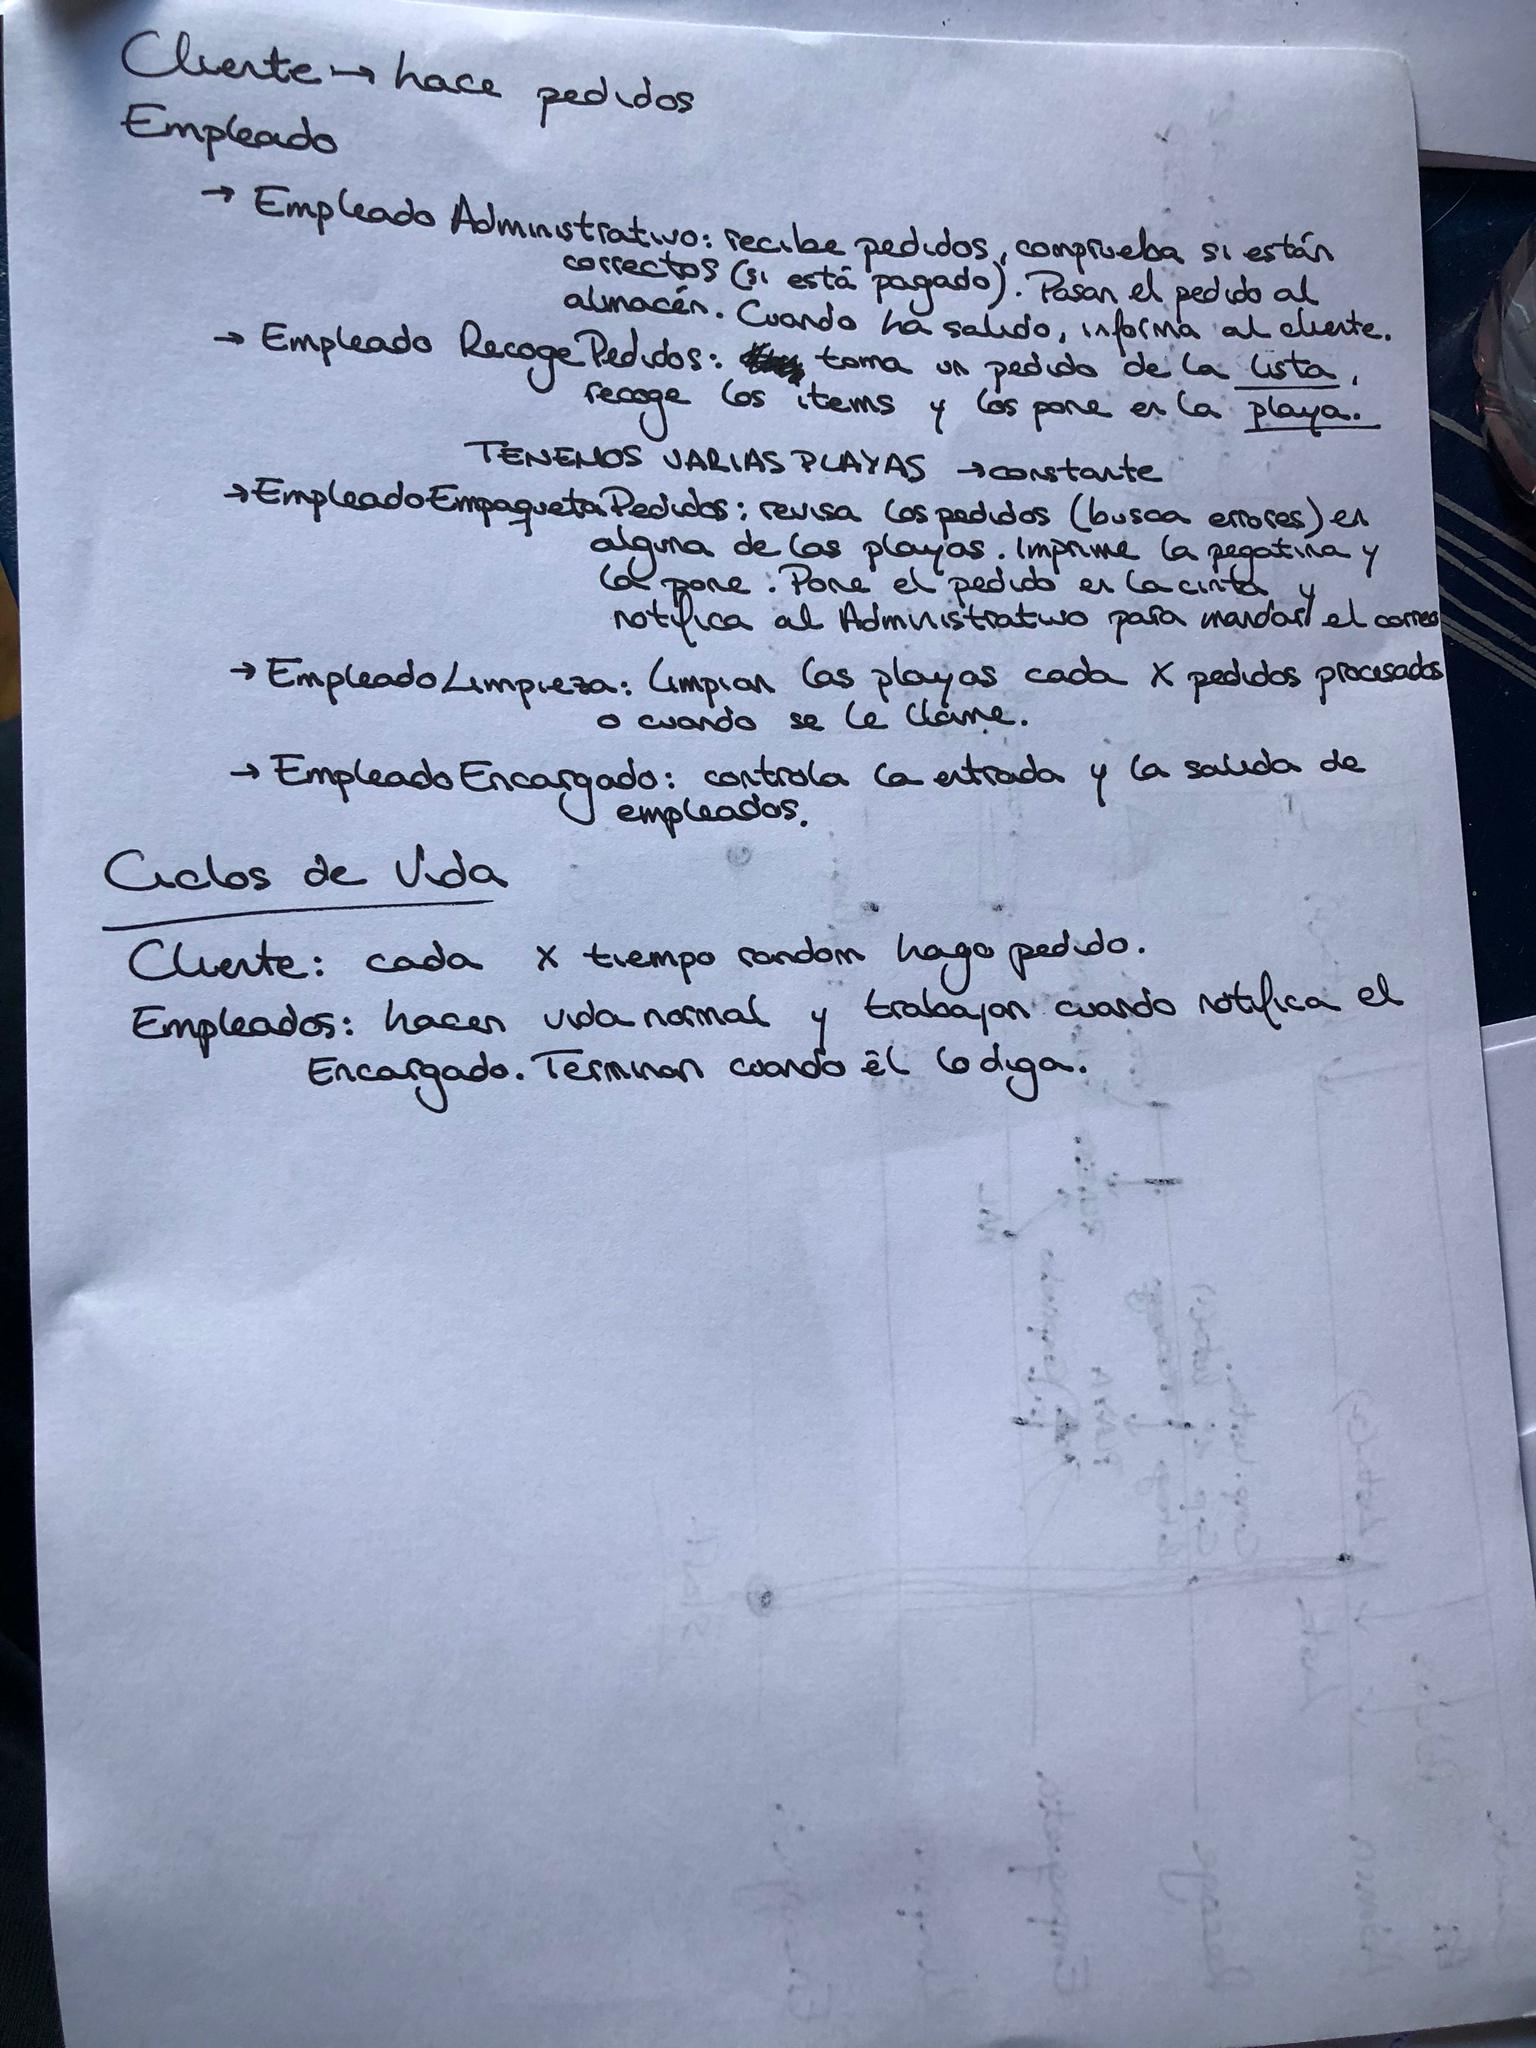 Cliente → hace pedidos
Empleado
→ Empleado Administrativo: recibe pedidos, comprueba si están
correctos (si está pagado). Pasan el pedido al
almacén. Cuando ha salido, informa al cliente.
→ Empleado RecogePedidos: toma un pedido de la lista,
recoge los items y los pone en la playa.
TENEMOS VARIAS PLAYAS → constante
→ EmpleadoEmpaquetaPedidos: revisa los pedidos (busca errores) en
alguna de las playas. Imprime la pegatina y
la pone. Pone el pedido en la cinta y
notifica al Administrativo para mandar el correo
→ EmpleadoLimpieza: limpian las playas cada X pedidos procesados
o cuando se le llame.
→ EmpleadoEncargado: controla la entrada y la salida de
empleados.
Ciclos de Vida
Cliente: cada X tiempo random hago pedido.
Empleados: hacen vida normal y trabajan cuando notifica el
Encargado. Terminan cuando él lo diga.